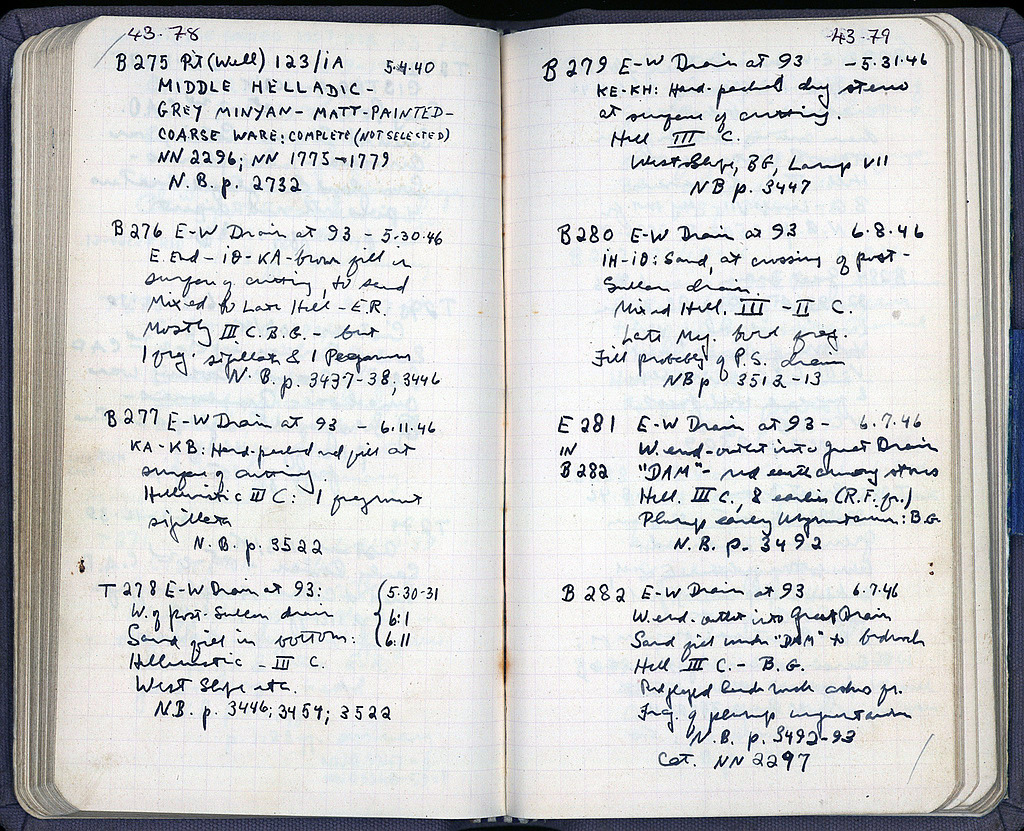 43.78
B 275 Pit (Well) 123/IA 5.4.40
MIDDLE HELLADIC -
GREY MINYAN - MATT-PAINTED -
COARSE WARE: COMPLETE (NOT SELECTED)
NN 2296; NN 1775→1779
N.B. p. 2732
B 276 E-W Drain at 93 - 5.30.46
E. End - ΙΘ-ΚΑ - brown fill in
surface of cutting, to sand
Mixed to Late Hell - E.R.
Mostly III C. B.G. - but
1 frg. sigillata & 1 Pergamene
N.B. p. 3437-38; 3446
B 277 E-W Drain at 93 - 6.11.46
KA-KB: Hard-packed red fill at
surface of cutting
Hellenistic III C: 1 fragment
sigillata
N.B. p. 3522
T 278 E-W Drain at 93: 5.30-31
W. of post-Sullan drain 6.1
Sand fill in bottom: 6.11
Hellenistic - III C.
West Slope etc.
N.B. p. 3446; 3454; 3522
43.79
B 279 E-W Drain at 93 - 5.31.46
KE-KH: Hard-packed dry
at surface of cutting.
Hell III C.
West Slope, BG, Lamp VII
NB p. 3447
B 280 E-W Drain at 93 6.8.46
IH-ΙΘ: Sand, at crossing of post-
Sullan drain.
Mixed Hell. III - II C.
Late bowl frag.
Fill probably of P.S. drain
NB p 3512-13
E 281 E-W Drain at 93 - 6.7.46
IN W. end - outlet into Great Drain
B 282 "DAM" - red earth among stones
Hell. III C., & earlier (R.F. fr.)
early : B.G.
N.B. p. 3492
B 282 E-W Drain at 93 6.7.46
W. end - outlet into Great Drain
Sand fill under "DAM" to bedrock
Hell III C. - B.G.
fr.
Frg. of
N.B. p. 3492-93
Cat. NN 2297